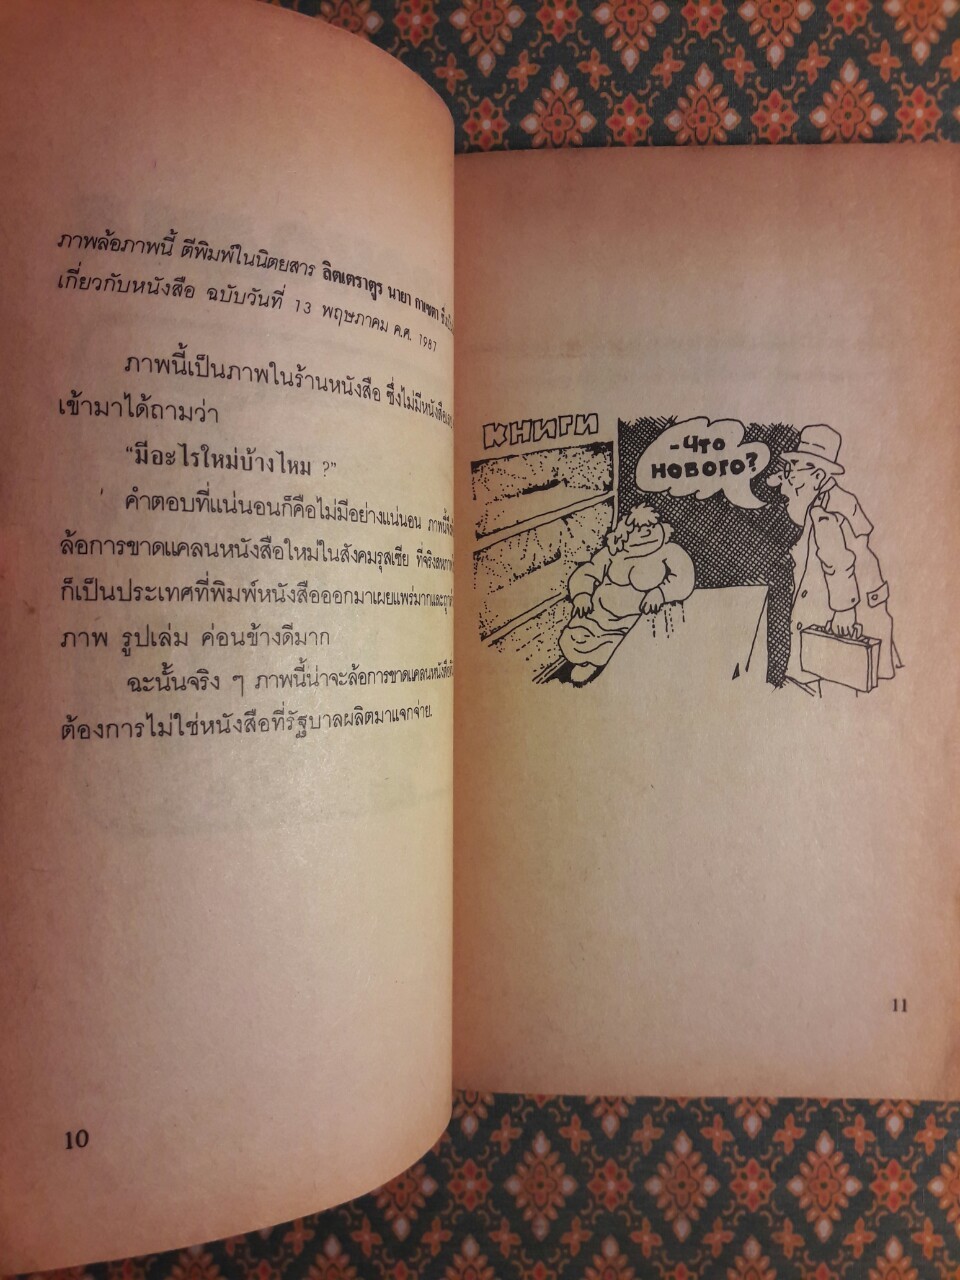 ภาพล้อภาพนี้ ตีพิมพ์ในนิตยสาร ลิตเตราตูร นายา กาเซตา
เกี่ยวกับหนังสือ ฉบับวันที่ 13 พฤษภาคม ค.ศ. 1987
ภาพนี้เป็นภาพในร้านหนังสือ ซึ่งไม่มีหนังสือ
เข้ามาได้ถามว่า
"มีอะไรใหม่บ้างไหม ?"
คำตอบที่แน่นอนก็คือไม่มีอย่างแน่นอน ภาพนี้
ล้อการขาดแคลนหนังสือใหม่ในสังคมรุสเซีย ที่จริง
ก็เป็นประเทศที่พิมพ์หนังสือออกมาเผยแพร่มาก
ภาพ รูปเล่ม ค่อนข้างดีมาก
ฉะนั้นจริง ๆ ภาพนี้น่าจะล้อการขาดแคลนหนังสือ
ต้องการไม่ใช่หนังสือที่รัฐบาลผลิตมาแจกจ่าย.
10
КНИГИ
-ЧТО
НОВОГО?
11